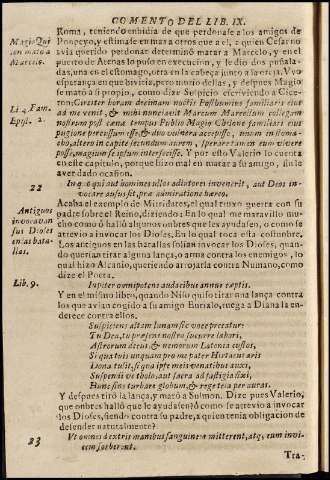 COMENTO DEL LIB. IX.
Roma, teniendo enbidia de que perdonase a los amigos de
Magio Qui
Ponpeyo, y estimase en mas a otros que a el, e quien Cesar no
cio mato a
avia querido perdonar determinò matar a Marcelo, y en el
Marcelo.
puerto de Atenas lo puso en execucion, y le dio dos puñala-
das, una en el estomago, otra en la cabeça junto a la oreja. Vvo
esperança en que biviria, pero murio dellas, y despues Magio
se matò a si propio, como dize Suspicio escriviendo a Cice-
ron; Circiter horam decimam noctis Posthumius familiaris eius
Li. 4. Fam.
ad me venit, & mihi nunciavit Marcum Marcellum collegam
Epist. 2.
nostrum post cœnæ tempus Publio Magio Chilone familiari eius
pugione percussum esse, & duo vulnera accepisse, unum in stoma-
cho, alterum in capite secundum aurem, sperare tamen eum vivere
posse, magium se ipsum interfecisse. Y por esto Valerio lo cuenta
en este capitulo, porque hizo mal en matar a su amigo, sin le
aver dado ocasion.
22
In quo qui aut homines illos adiutores invenerit, aut Deos in-
vocare ausus sit, præ admiratione hæreo.
Antiguos
Acaba el exemplo de Mitridates, el qual truxo guerra con su
invocavan
padre sobre el Reino, diziendo: En lo qual me maravillo mu-
sus Dioses
cho como ò hallò algunos onbres que les ayudasen, o como se
en las bata-
atrevio a invocar los Dioses. En lo qual toca esta costunbre.
llas.
Los antiguos en las batallas solian invocar los Dioses, quan-
do querian tirar alguna lança, o arma contra los enemigos, lo
qual hizo Alcanio, queriendo arrojarla contra Numano, como
dize el Poeta.
Lib. 9.
Iupiter omnipotens audacibus annue cæptis.
Y en el mismo libro, quando Niso quiso tirar una lança contra
los que avian cogido a su amigo Eurialo, ruega a Diana la en-
derece contra ellos.
Suspiciens altam lunam sic voce precatur:
Tu Dea, tu præsens nostro succurre labori,
Astrorum decus & nemorum Latonia custos,
Si qua tuis unquam pro me pater Hirtacus aris
Dona tulit, si qua ipse meis venatibus auxi,
Suspendi ve tholo, aut sacra ad fastigia fixi,
Hunc sine turbare globum, & rege tela per auras.
Y despues tirò la lança, y matò a Sulmon. Dize pues Valerio,
que onbres hallò que le ayudasen? o como se atrevio a invocar
los Dioses, siendo contra su padre, a quien tenia obligacion de
defender naturalmente?
23
Vt omnes dextris manibus sanguinem mitterent, atq; eum invi-
cem sorberent.
Tra-